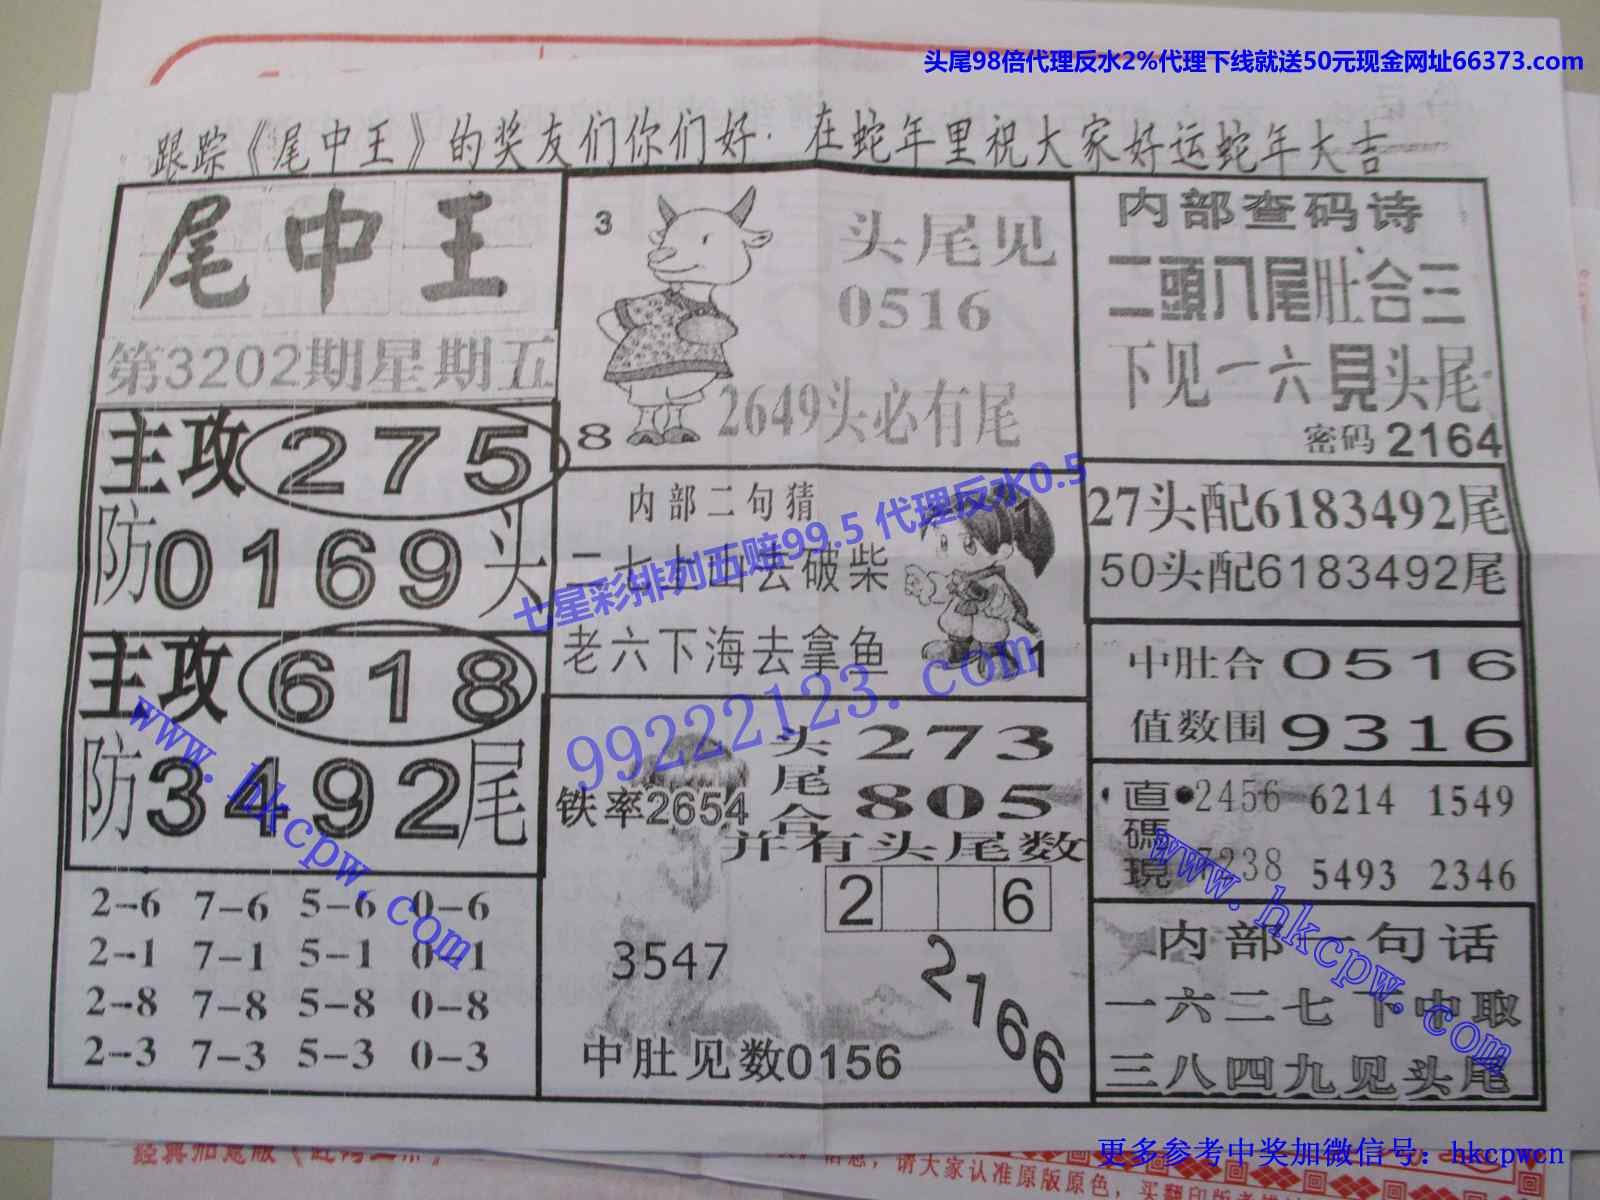 头尾98倍代理反水2%代理下线就送50元现金网址66373.com
跟踪《尾中王》的奖友们你们好．在蛇年里祝大家好运蛇年大吉
尾中王
第3202期星期五
主攻275
防0169头
主攻618
防3492尾
2-6 7-6 5-6 0-6
2-1 7-1 5-1 0-1
2-8 7-8 5-8 0-8
2-3 7-3 5-3 0-3
3
8
头尾见
0516
2649头必有尾
内部二句猜
二七上山去破柴
老六下海去拿鱼
1
01
七星彩排列五赔99.5 代理反水0.5
99222123.com
头尾合
273
805
铁率2654
并有头尾数
2 6
3547
2166
中肚见数0156
内部查码诗
二頭八尾肚合三
下见一六見头尾
密码2164
27头配6183492尾
50头配6183492尾
中肚合0516
值数围9316
直碼現
2456 6214 1549
7238 5493 2346
内部一句话
一六二七下中取
三八四九见头尾
www.hkcpw.com
www.hkcpw.com
更多参考中奖加微信号：hkcpwcn
请大家认准原版原色，买翻印版者